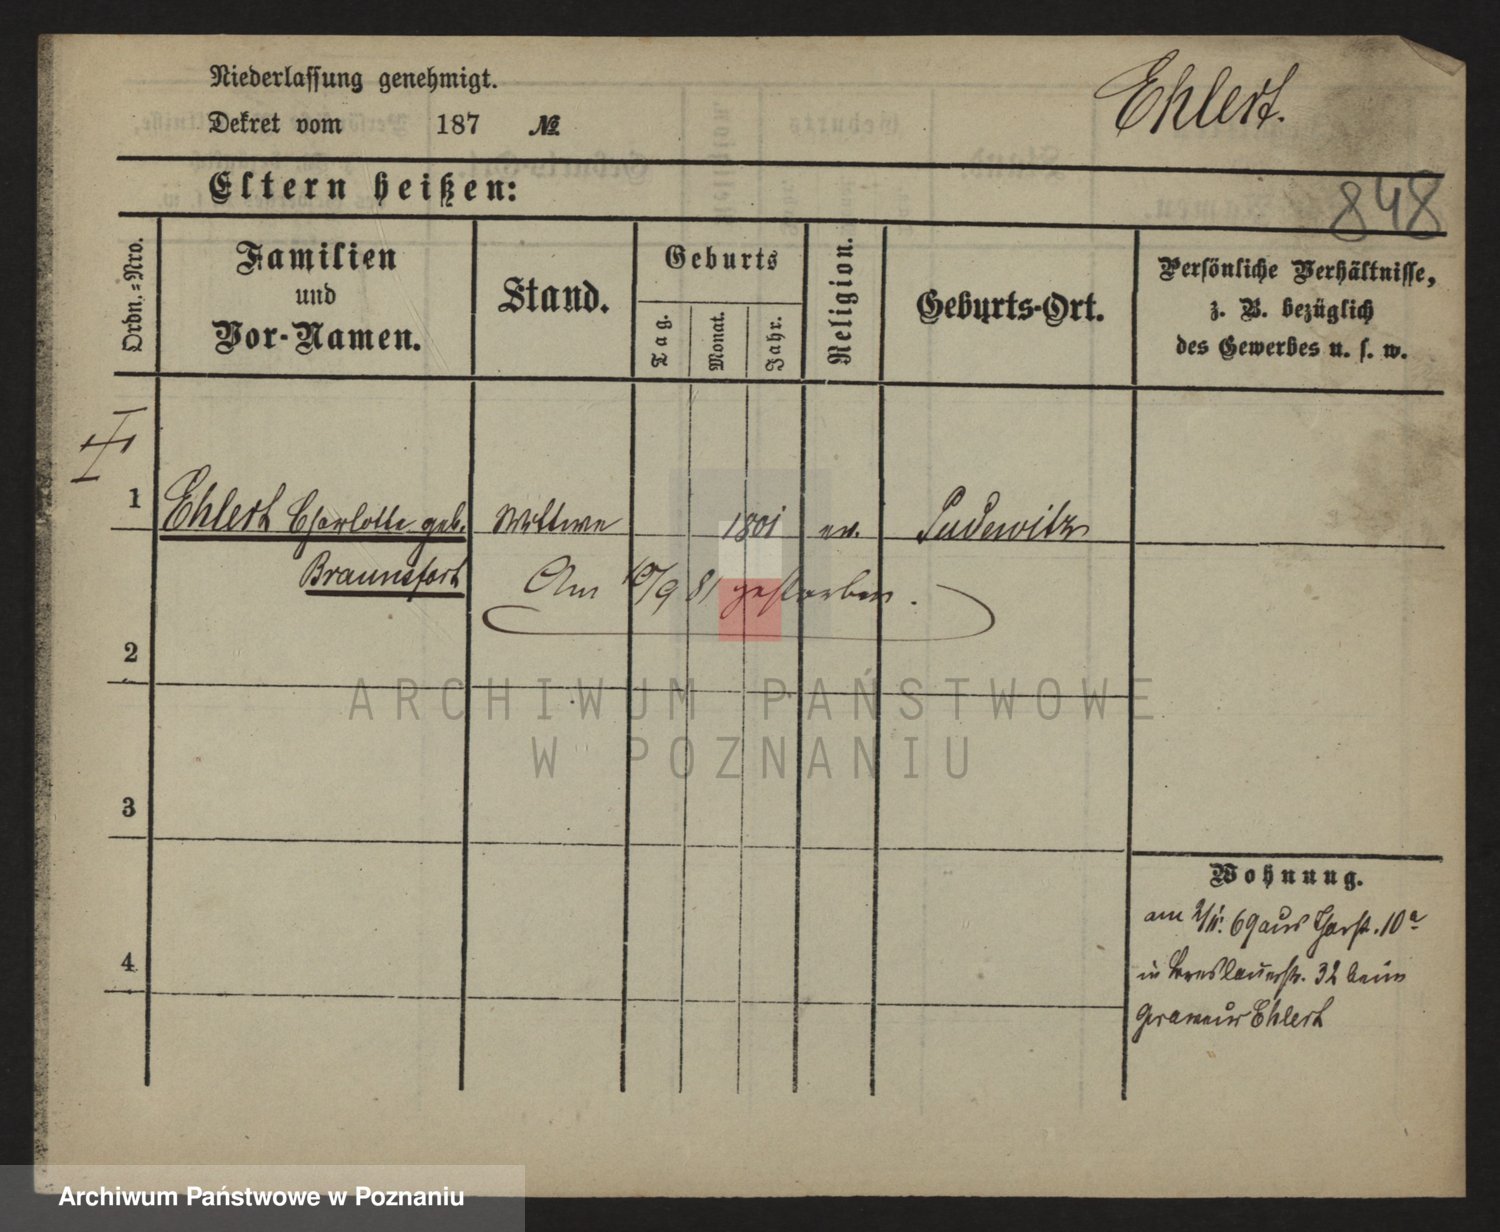 Niederlassung genehmigt.
Ehlert.
Dekret vom 187 №
Eltern heißen:
848
Ordn.=Nro.
Familien
und
Vor-Namen.
Stand.
Geburts
Tag.
Monat.
Jahr.
Religion.
Geburts-Ort.
Persönliche Verhältnisse,
z. B. bezüglich
des Gewerbes u. s. w.
1 Ehlert Charlotte geb. Wittwe 1801 ev. Pudewitz
Braunsfort
Am 10/9 81 gestorben.
2
ARCHIWUM PAŃSTWOWE
W POZNANIU
3
Wohnung.
am 2/11. 69 aus Thorst. 10a
4
in Breslauerstr. 32 beim
Graveur Ehlert
Archiwum Państwowe w Poznaniu